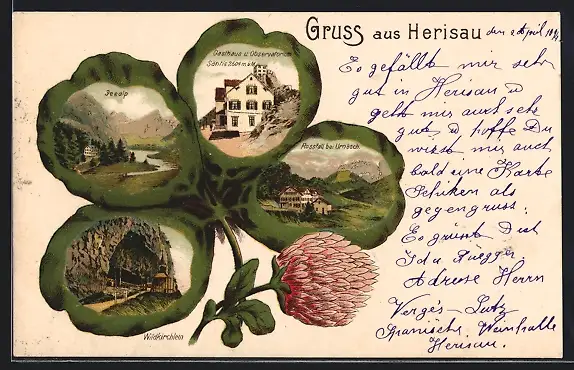 Gruss aus Herisau den 2 April 1899
Gasthaus u Observatorium
Säntis 2504 m ü M
Seealp
Rossfall bei Urnäsch
Wildkirchlein
Es gefällt mir sehr
gut in Herisau u
geht mir auch sehr
gut, u hoffe Du
wirst mir auch
bald eine Karte
schiken als
gegengruss.
Es grüsst Dich
Ida Rüegger
Adresse Herrn
Vergés-Lutz
Spanische Weinhalle
Herisau.